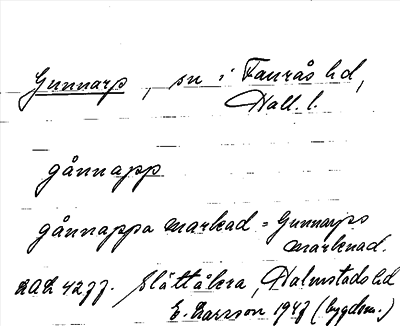 Gunnarp, sn i Faurås hd,
Hall. l.
gånnapp
gånnappa markad = Gunnarps
marknad.
Slättåkra, Halmstads hd
E. Larsson 1947 (bygdem.)